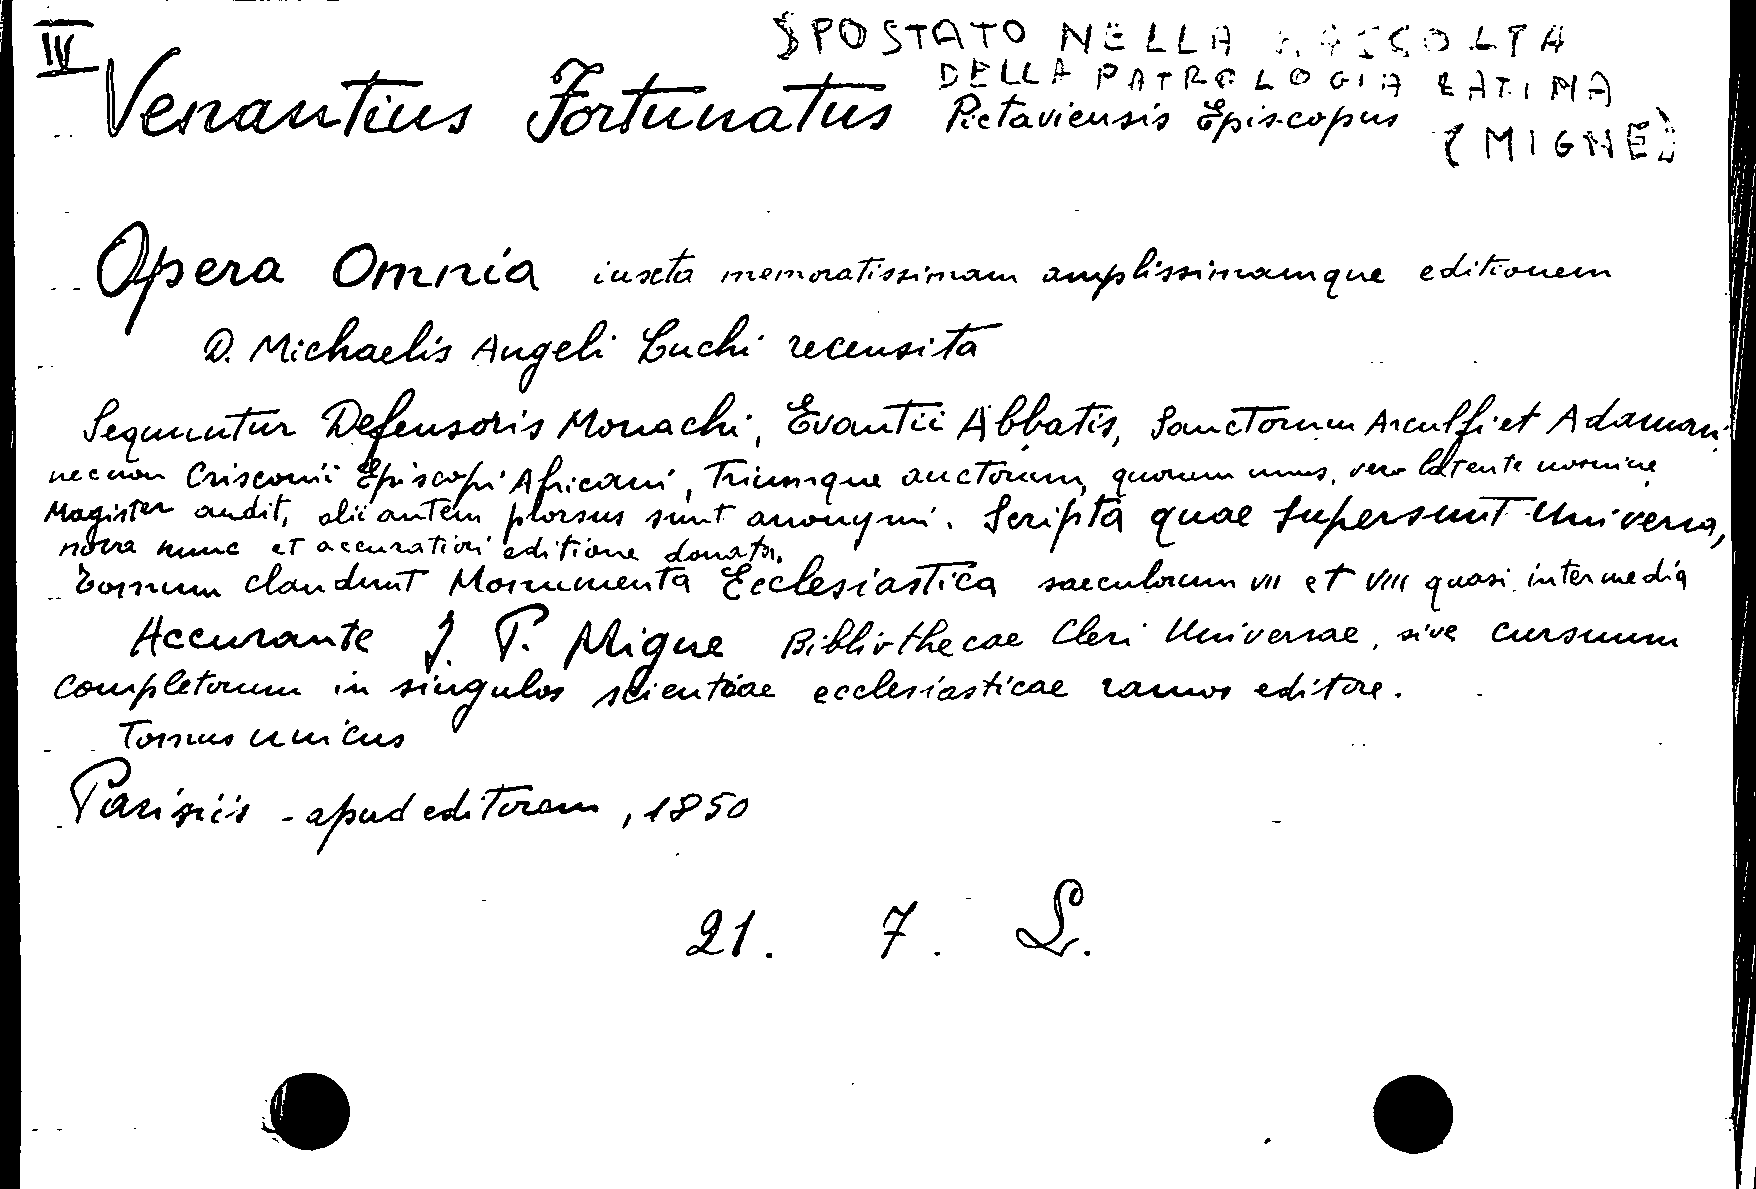 IV
SPOSTATO NELLA RACCOLTA
DELLA PATROLOGIA LATINA
(MIGNE)
Venantius Fortunatus Pictaviensis Episcopus
Opera Omnia iuxta memoratissimam amplissimamque editionem
D. Michaelis Angeli Luchi recensita
Sequuntur Defensoris Monachi, Evantii Abbatis, Sanctorum Arculfi et Adamani
necnon Crisconii Episcopi Africani, Triumque auctorum, quorum unus, vero latente nomine,
Magister audit, alii autem prorsus sunt anonymi. Scripta quae supersunt Universa,
nova nunc et accuratiori editione donata.
Tomum claudunt Monumenta Ecclesiastica saeculorum VII et VIII quasi intermedia
Accurante J. P. Migne Bibliothecae Cleri Universae, sive cursuum
completorum in singulos scientiae ecclesiasticae ramos editore.
Tomus unicus
Parisiis - apud editorem, 1850
21. 7. L.